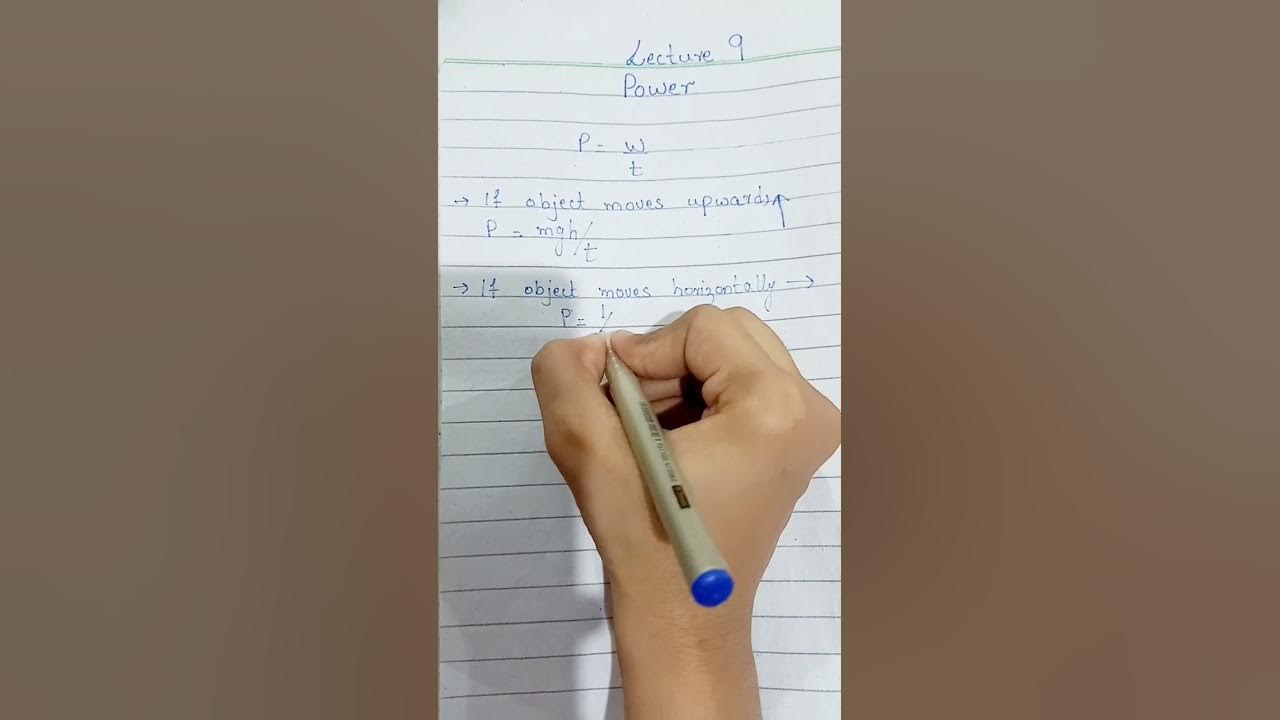 Lecture 9
Power
P = w/t
→ If object moves upwards ↑
P = mgh/t
→ If object moves horizontally →
P = 1/